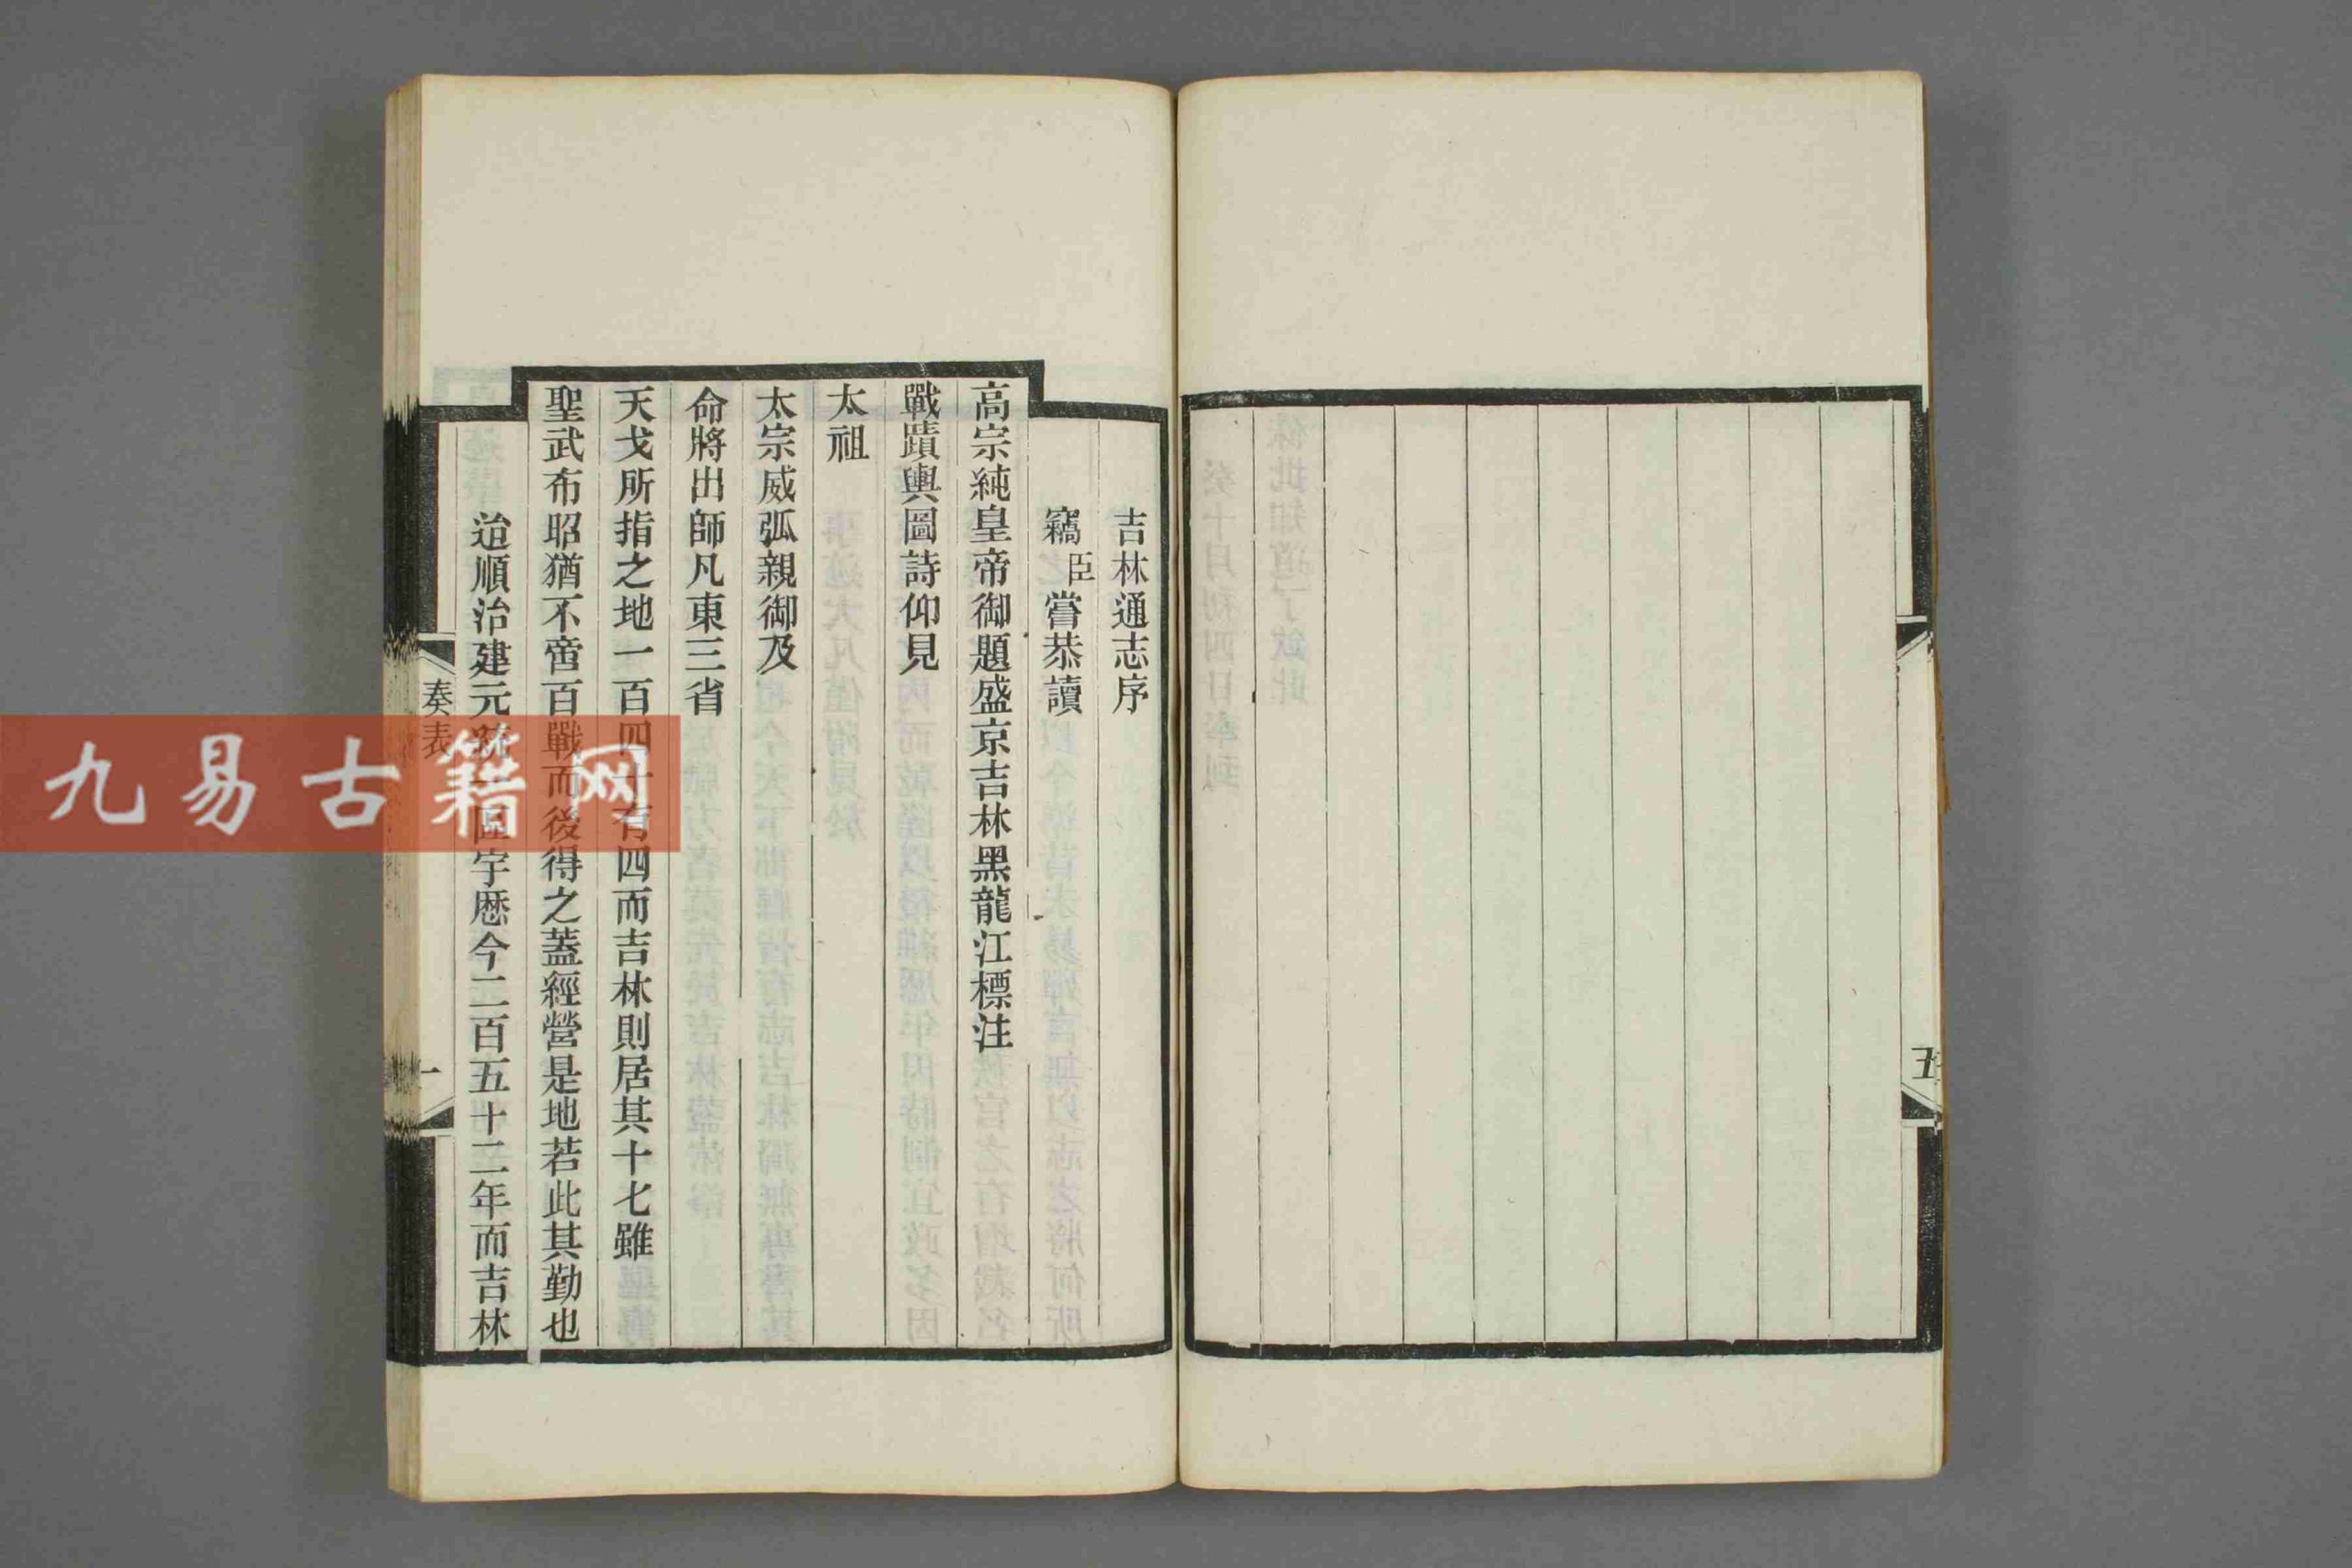 五
吉林通志序
竊臣嘗恭讀
高宗純皇帝御題盛京吉林黑龍江標注
戰蹟輿圖詩仰見
太祖
太宗威弧親御及
命將出師凡東三省
天戈所指之地一百四十有四而吉林則居其十七雖
聖武布昭猶不啻百戰而後得之蓋經營是地若此其勤也
迨順治建元統一區宇歷今二百五十二年而吉林
奏表
一
九易古籍网